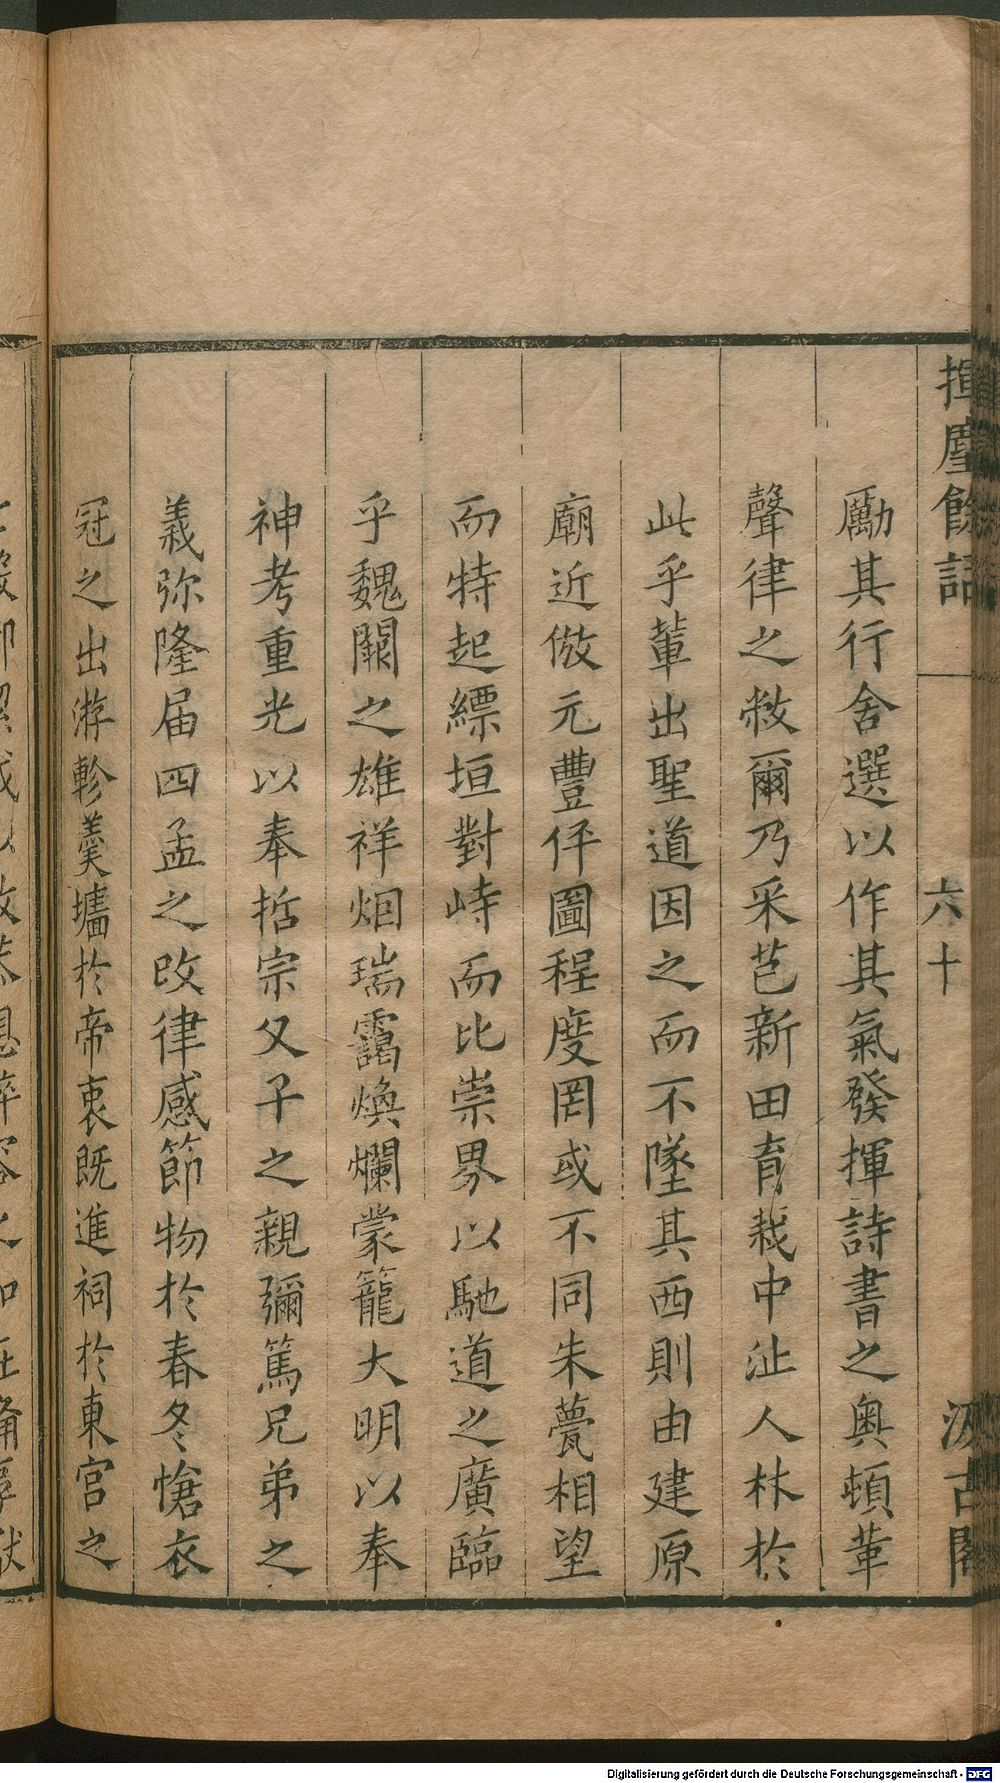 揮麈餘話
六十
汲古閣
勵其行舍選以作其氣發揮詩書之奥頓革
聲律之敝爾乃采芑新田育莪中沚人材於
此乎輩出聖道因之而不墜其西則由建原
廟近倣元豐伻圖程度罔或不同朱甍相望
而特起縹垣對峙而比崇界以馳道之廣臨
乎魏闕之雄祥烟瑞靄煥爛蒙籠大明以奉
神考重光以奉哲宗父子之親彌篤兄弟之
義弥隆届四孟之改律感節物於春冬愴衣
冠之出游軫羹墻於帝衷既進祠於東宫之
Digitalisierung gefördert durch die Deutsche Forschungsgemeinschaft - DFG